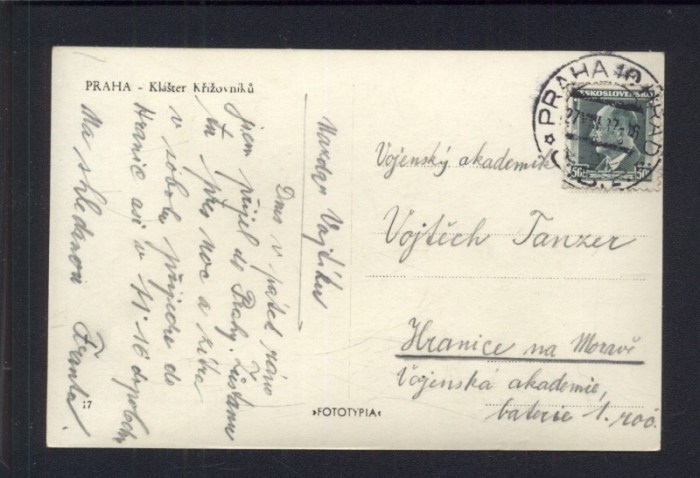 PRAHA - Klášter Křížovníků
Nazdar Vojtíku
Dnes v pátek ráno
jsem přijel do Prahy. Zůstanu
tu přes noc a zítra
v sobotu přijedu do
Hranic asi v 11·16 dopoledne
Na shledanou Franta
17
»FOTOTYPIA«
PRAHA 10 HRAD
ČESKOSLOVENSKO
50 50
Vojenský akademik
Vojtěch Tanzer
Hranice na Moravě
Vojenská akademie,
baterie 1. roč.